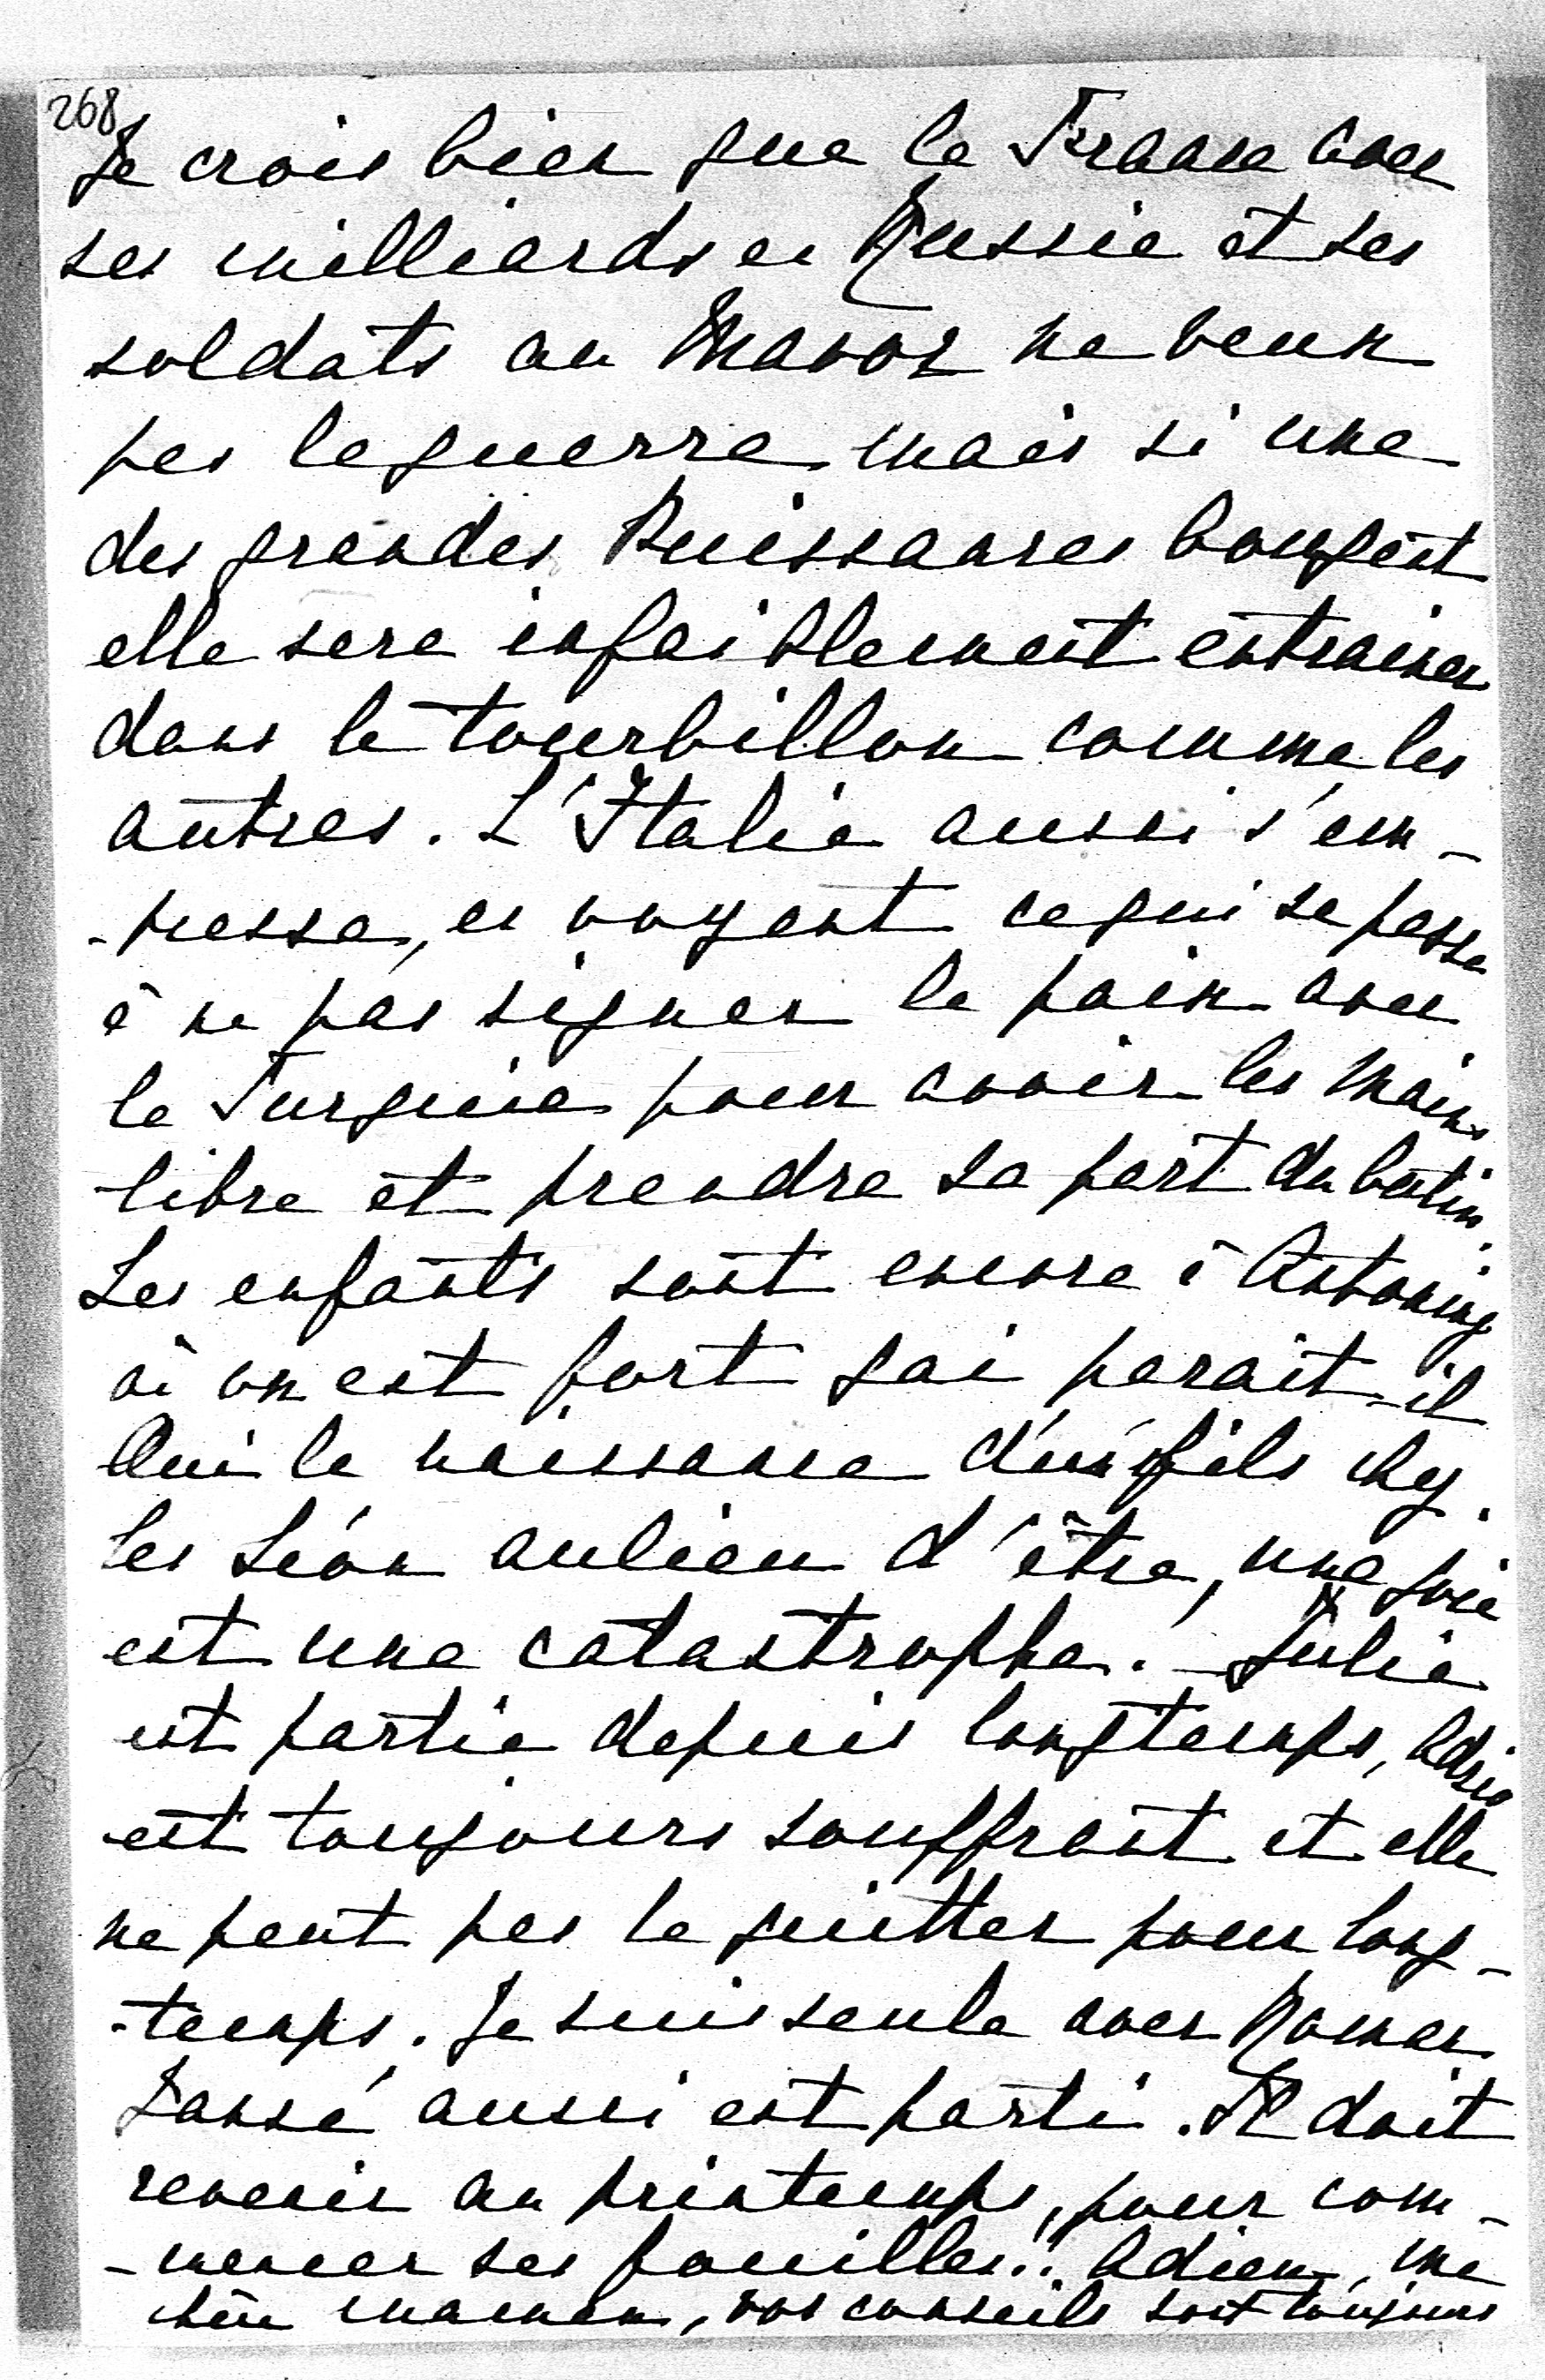 268
Je crois bien que la France avec
ses milliards en Russie et ses
soldats au Maroc ne veux
pas la guerre mais si une
des grandes Puissances bougent
elle sera infailblement entrainer
dans le tourbillon comme les
autres. L'Italie aussi s'em-
-presse, en voyant ce qui se passe
à ne pas signer la paix avec
la Turquie pour avoir les mains
libre et prendre sa part du butin.
Les enfants sont encore à Antoniny
où on est fort gai parait-il
Oui la naissance d'un fils chez
les Léon au lieu d'être, une joie
est une catastrophe. - Julie
est partie depuis longtemps,
est toujours souffrant et elle
ne peut pas le quitter pour long-
-temps. Je suis seule avec Roman
Jansé aussi est parti. Il doit
revenir au printemps, pour com-
-mencer ses fouilles!! Adieu, ma
chère maman, vos conseils sont toujours